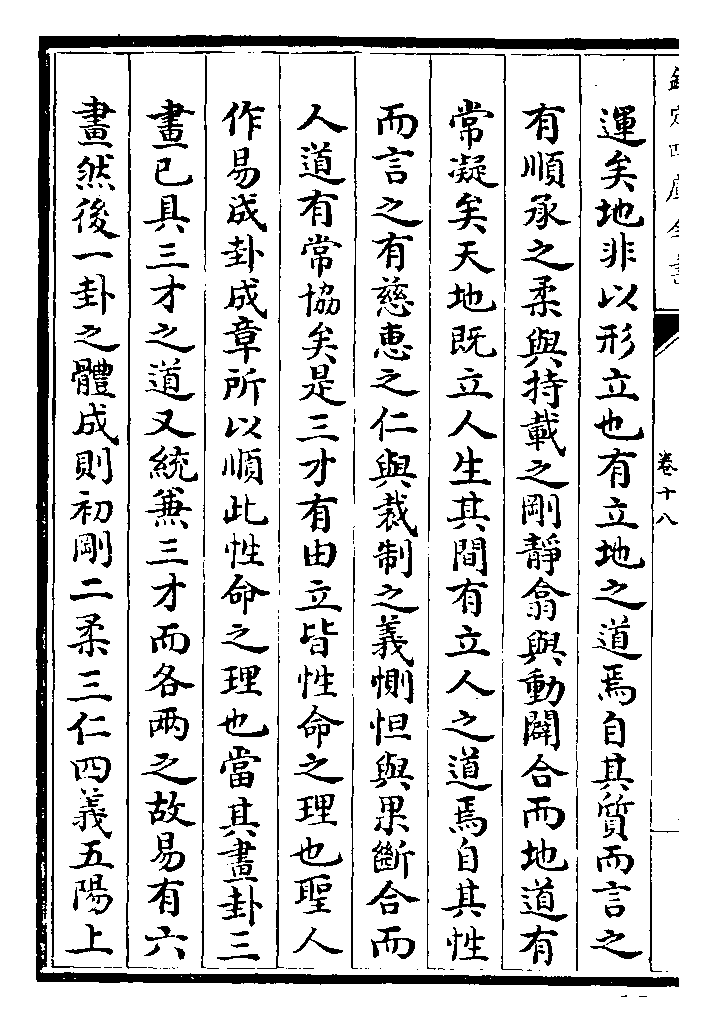 欽定四庫全書
卷十八
運矣地非以形立也有立地之道焉自其質而言之
有順承之柔與持載之剛靜翕與動闢合而地道有
常凝矣天地既立人生其間有立人之道焉自其性
而言之有慈惠之仁與裁制之義惻怛與果斷合而
人道有常協矣是三才有由立皆性命之理也聖人
作易成卦成章所以順此性命之理也當其畫卦三
畫已具三才之道又統兼三才而各兩之故易有六
畫然後一卦之體成則初剛二柔三仁四義五陽上